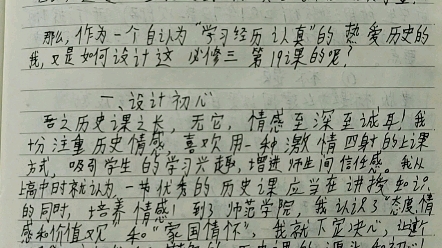 那么,作为一个自认为"学习经历认真"的热爱历史的
我,又是如何设计这 必修三 第19课的呢?
一、设计初心
吾之历史课之长,无它,情感至深至诚耳!我
十分注重历史情感,喜欢用一种激情四射的上课
方式,吸引学生的学习兴趣,增进师生间信任感。我从
上高中时就认为,一节优秀的历史课应当在讲授知识
的同时,培养情感!到了师范学院,我认识了"态度、情
感和价值观"和"家国情怀",我就下定决心,让